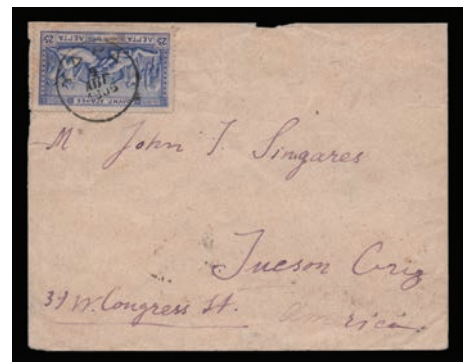 25 ΛΕΠΤΑ ΛΕΠΤΑ 25
ΑΥΓ
Mr John T. Singares
Tucson Ariz
39 W. Congress St. America.